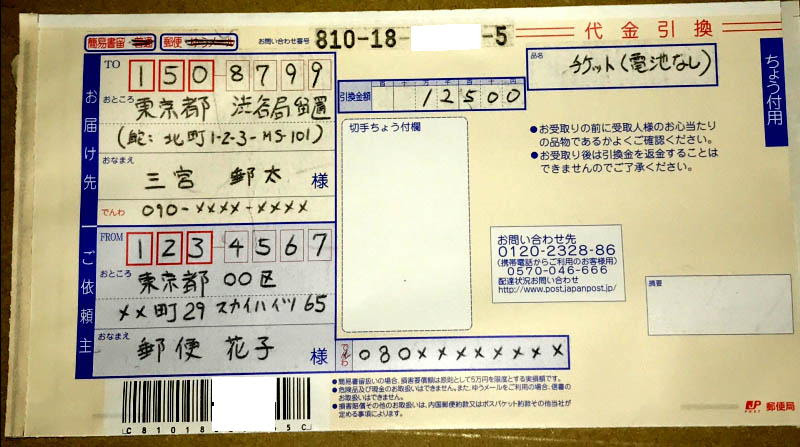 簡易書留・普通 郵便・ゆうメール お問い合わせ番号 810-18- -5
代金引換
TO 150-8799
お届け先
おところ 東京都 渋谷局留置
北町1-2-3-MS-101)
おなまえ 三宮 郵太 様
でんわ 090-××××-××××
FROM 123-4567
ご依頼主
おところ 東京都 〇〇区
××町29 スカイハイツ65
おなまえ 郵便 花子 様
でんわ 080××××××××
引換金額 百十万千百十円
12500
切手ちょう付欄
品名
チケット(電池なし)
ちょう付用
●お受取りの前に受取人様のお心当たり
の品物であるかよくご確認ください。
●お受取り後は引換金を返金することは
できませんのでご了承ください。
お問い合わせ先
0120-2328-86
(携帯電話からご利用のお客様用)
0570-046-666
配達状況お問い合わせ
http://www.post.japanpost.jp/
摘要
●簡易書留扱いの場合、損害要償額は原則として5万円を限度とする実損額です。
●危険品及び現金のお取扱いはできません。また、ゆうメールをご利用の場合、信書の
お取扱いはできません。
●損害賠償その他のお取扱いは、内国郵便約款又はポスパケット約款その他当社が
定める事項によります。
C81018 5C
JP POST 郵便局